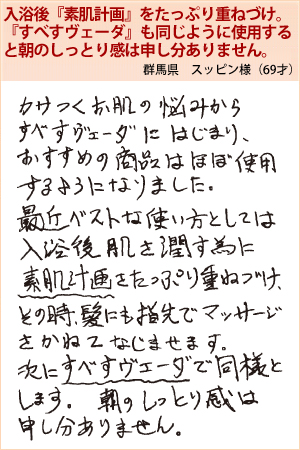 入浴後『素肌計画』をたっぷり重ねづけ。
『すべすヴェーダ』も同じように使用する
と朝のしっとり感は申し分ありません。
群馬県　スッピン様（69才）
カサつくお肌の悩みから
すべすヴェーダにはじまり、
おすすめの商品はほぼ使用
するようになりました。
最近ベストな使い方としては
入浴後肌を潤す為に
素肌計画をたっぷり重ねづけ、
その時、髪にも指先でマッサージ
をかねてなじませます。
次にすべすヴェーダで同様と
します。朝のしっとり感は
申し分ありません。